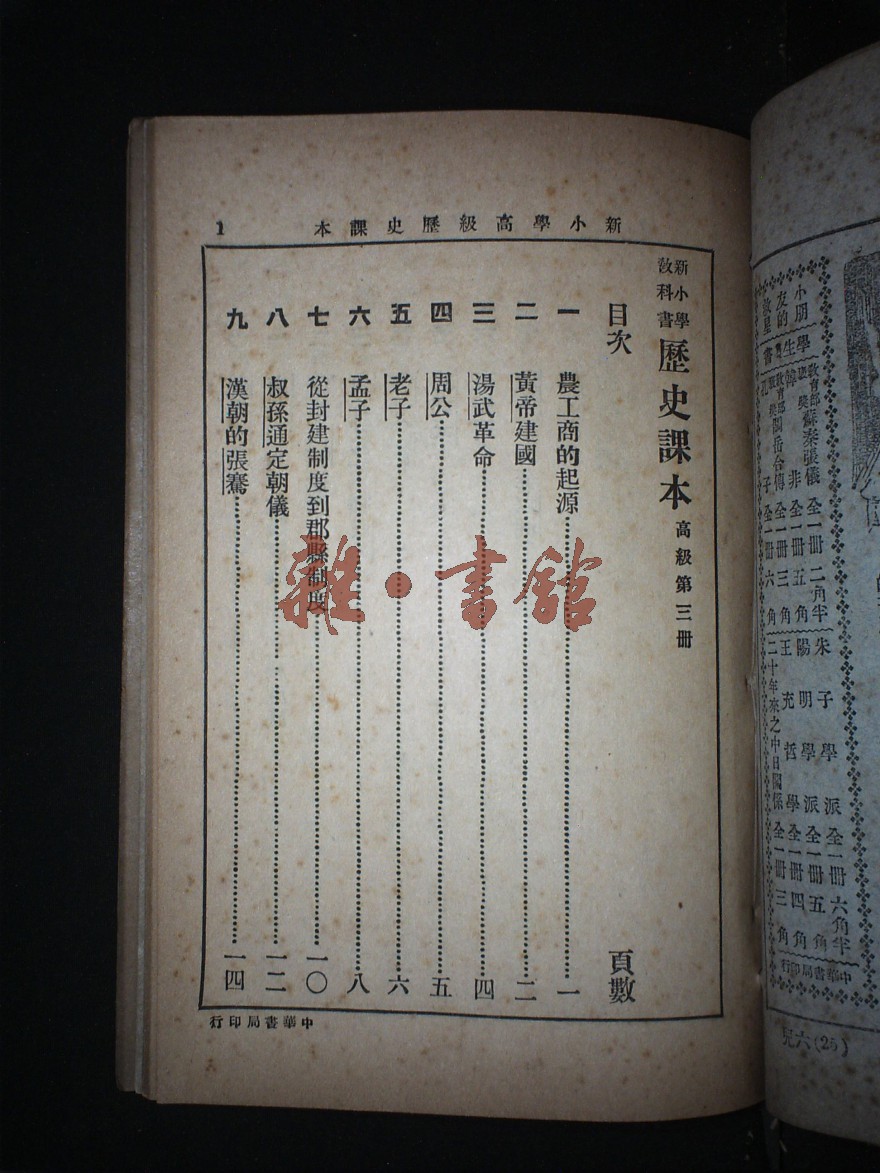 新小學高級歷史課本
1
新小學
教科書
歷史課本 高級第三冊
目次 頁數
一 農工商的起源 一
二 黃帝建國 二
三 湯武革命 四
四 周公 五
五 老子 六
六 孟子 八
七 從封建制度到郡縣制度 一〇
八 叔孫通定朝儀 一二
九 漢朝的張騫 一四
中華書局印行
雜·書館
小朋友的救星
學生叢書
教育部 蘇秦張儀 全一冊 二角半
韓非 全一冊 五角
教育部 關岳合傳 全一冊 三角
孔子 全一冊 六角
朱子學派 全一冊 六角半
陽明學派 全一冊 五角
王充哲學 全一冊 四角
二十年來之中日關係 全一冊 三角
中華書局印行
六兒(25)